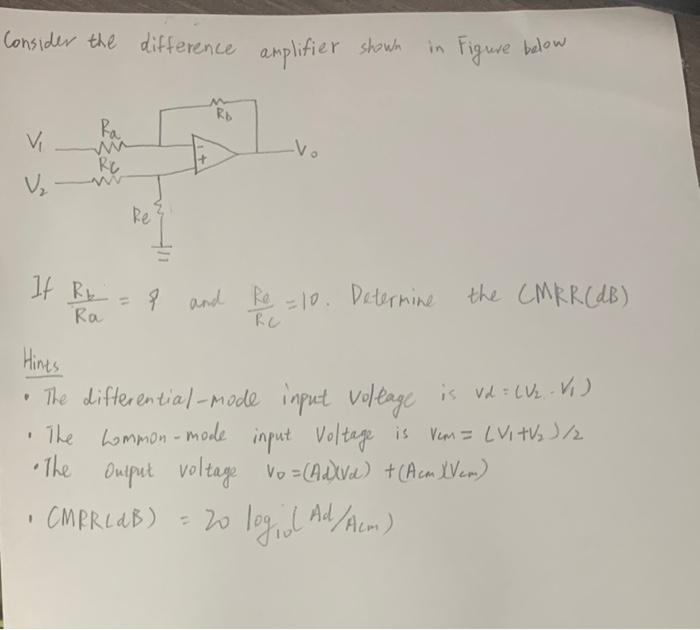 Consider the difference amplifier shown in Figure below
Rb
Ra
V1
- Vo
+
Rc
V2
Re
If Rb/Ra = 9 and Re/Rc = 10. Determine the CMRR(dB)
Hints
• The differential-mode input voltage is vd = (V2 - V1)
• The Common-mode input Voltage is vcm = (V1+V2)/2
• The Output voltage vo = (Ad)(vd) + (Acm)(Vcm)
• CMRR(dB) = 20 log10(Ad/Acm)